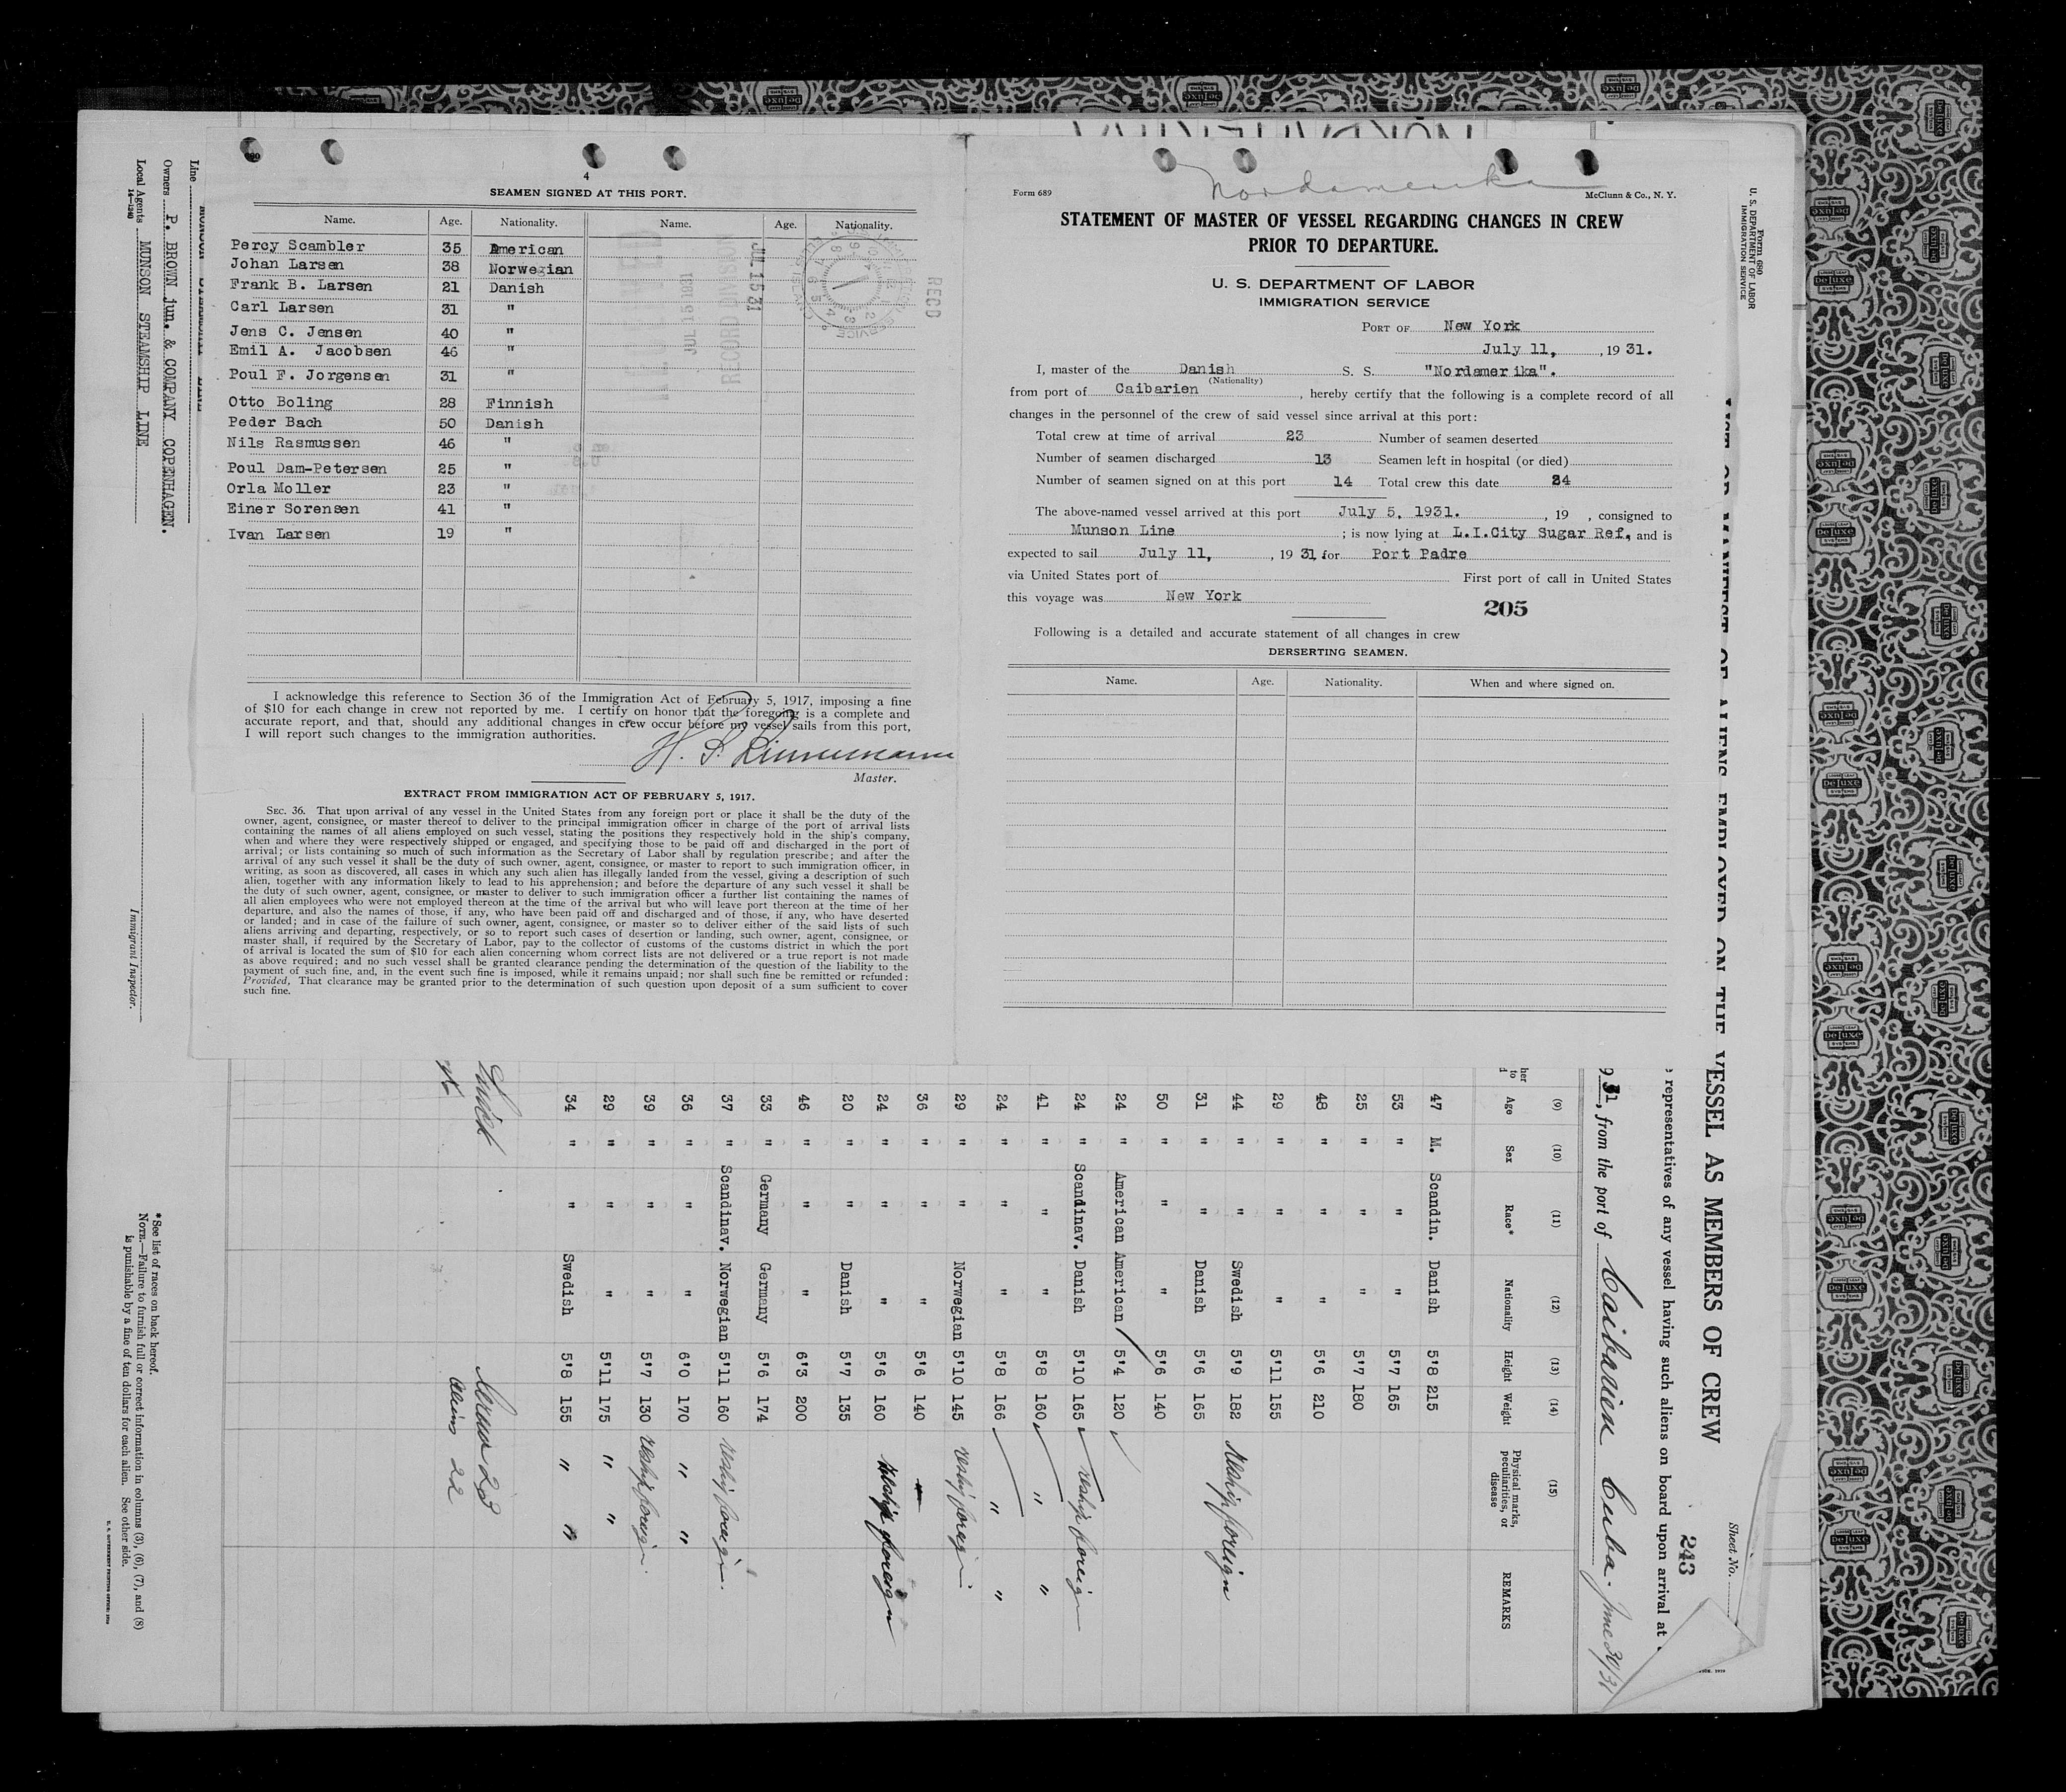 4
SEAMEN SIGNED AT THIS PORT.
Name. Age. Nationality. Name. Age. Nationality.
Percy Scambler 35 American
Johan Larsen 38 Norwegian
Frank B. Larsen 21 Danish
Carl Larsen 31 "
Jens C. Jensen 40 "
Emil A. Jacobsen 46 "
Poul F. Jorgensen 31 "
Otto Boling 28 Finnish
Peder Bach 50 Danish
Nils Rasmussen 46 "
Poul Dam-Petersen 25 "
Orla Moller 23 "
Einer Sorensen 41 "
Ivan Larsen 19 "
JUL 15 1931
RECORD DIVISION
JUL 15 31
REC'D
I acknowledge this reference to Section 36 of the Immigration Act of February 5, 1917, imposing a fine
of $10 for each change in crew not reported by me. I certify on honor that the foregoing is a complete and
accurate report, and that, should any additional changes in crew occur before my vessel sails from this port,
I will report such changes to the immigration authorities.
Master.
EXTRACT FROM IMMIGRATION ACT OF FEBRUARY 5, 1917.
SEC. 36. That upon arrival of any vessel in the United States from any foreign port or place it shall be the duty of the
owner, agent, consignee, or master thereof to deliver to the principal immigration officer in charge of the port of arrival lists
containing the names of all aliens employed on such vessel, stating the positions they respectively hold in the ship's company,
when and where they were respectively shipped or engaged, and specifying those to be paid off and discharged in the port of
arrival; or lists containing so much of such information as the Secretary of Labor shall by regulation prescribe; and after the
arrival of any such vessel it shall be the duty of such owner, agent, consignee, or master to report to such immigration officer, in
writing, as soon as discovered, all cases in which any such alien has illegally landed from the vessel, giving a description of such
alien, together with any information likely to lead to his apprehension; and before the departure of any such vessel it shall be
the duty of such owner, agent, consignee, or master to deliver to such immigration officer a further list containing the names of
all alien employees who were not employed thereon at the time of the arrival but who will leave port thereon at the time of her
departure, and also the names of those, if any, who have been paid off and discharged and of those, if any, who have deserted
or landed; and in case of the failure of such owner, agent, consignee, or master so to deliver either of the said lists of such
aliens arriving and departing, respectively, or so to report such cases of desertion or landing, such owner, agent, consignee, or
master shall, if required by the Secretary of Labor, pay to the collector of customs of the customs district in which the port
of arrival is located the sum of $10 for each alien concerning whom correct lists are not delivered or a true report is not made
as above required; and no such vessel shall be granted clearance pending the determination of the question of the liability to the
payment of such fine, and, in the event such fine is imposed, while it remains unpaid; nor shall such fine be remitted or refunded:
Provided, That clearance may be granted prior to the determination of such question upon deposit of a sum sufficient to cover
such fine.
Nordamerika
Form 689 McClunn & Co., N. Y.
STATEMENT OF MASTER OF VESSEL REGARDING CHANGES IN CREW
PRIOR TO DEPARTURE.
U. S. DEPARTMENT OF LABOR
IMMIGRATION SERVICE
PORT OF New York
July 11, , 19 31.
I, master of the Danish S. S. "Nordamerika".
(Nationality)
from port of Caibarien , hereby certify that the following is a complete record of all
changes in the personnel of the crew of said vessel since arrival at this port:
Total crew at time of arrival 23 Number of seamen deserted
Number of seamen discharged 13 Seamen left in hospital (or died)
Number of seamen signed on at this port 14 Total crew this date 24
The above-named vessel arrived at this port July 5, 1931. , 19 , consigned to
Munson Line ; is now lying at L.I.City Sugar Ref, and is
expected to sail July 11, , 19 31, for Port Padre
via United States port of First port of call in United States
this voyage was New York
205
Following is a detailed and accurate statement of all changes in crew
DERSERTING SEAMEN.
Name. Age. Nationality. When and where signed on.
Form 680
U. S. DEPARTMENT OF LABOR
IMMIGRATION SERVICE
Sheet No.
243
VESSEL AS MEMBERS OF CREW
representatives of any vessel having such aliens on board upon arrival at
31, from the port of Caibarien Cuba. June 30/31
(9) (10) (11) (12) (13) (14) (15)
Age Sex Race* Nationality Height Weight Physical marks, peculiarities, or disease REMARKS
47 M. Scandin. Danish 5'8 215
53 " " " 5'7 165
25 " " " 5'7 180
48 " " " 5'6 210
29 " " " 5'11 155
44 " " Swedish 5'9 182 Reship foreign
31 " " Danish 5'6 165
50 " " " 5'6 140
24 " American American 5'4 120
24 " Scandinav. Danish 5'10 165 reship foreign
41 " " " 5'8 160 " "
24 " " " 5'8 166 " "
29 " " Norwegian 5'10 145 reship foreign
36 " " " 5'6 140
24 " " " 5'6 160 reship foreign
20 " " Danish 5'7 135
46 " " " 6'3 200
33 " Germany Germany 5'6 174
37 " Scandinav. Norwegian 5'11 160 reship foreign
36 " " " 6'0 170 " "
39 " " " 5'7 130 reship foreign
29 " " " 5'11 175 " "
34 " " Swedish 5'8 155 " "
Crew 23
Aliens 22
Line
Owners P. BROWN jun. & COMPANY COPENHAGEN.
Local Agents MUNSON STEAMSHIP LINE
14—1240
Immigrant Inspector.
* See list of races on back hereof.
NOTE.—Failure to furnish full or correct information in columns (3), (6), (7), and (8)
is punishable by a fine of ten dollars for each alien. See other side.
LOOSE LEAF
DeLuxe
SYSTEMS